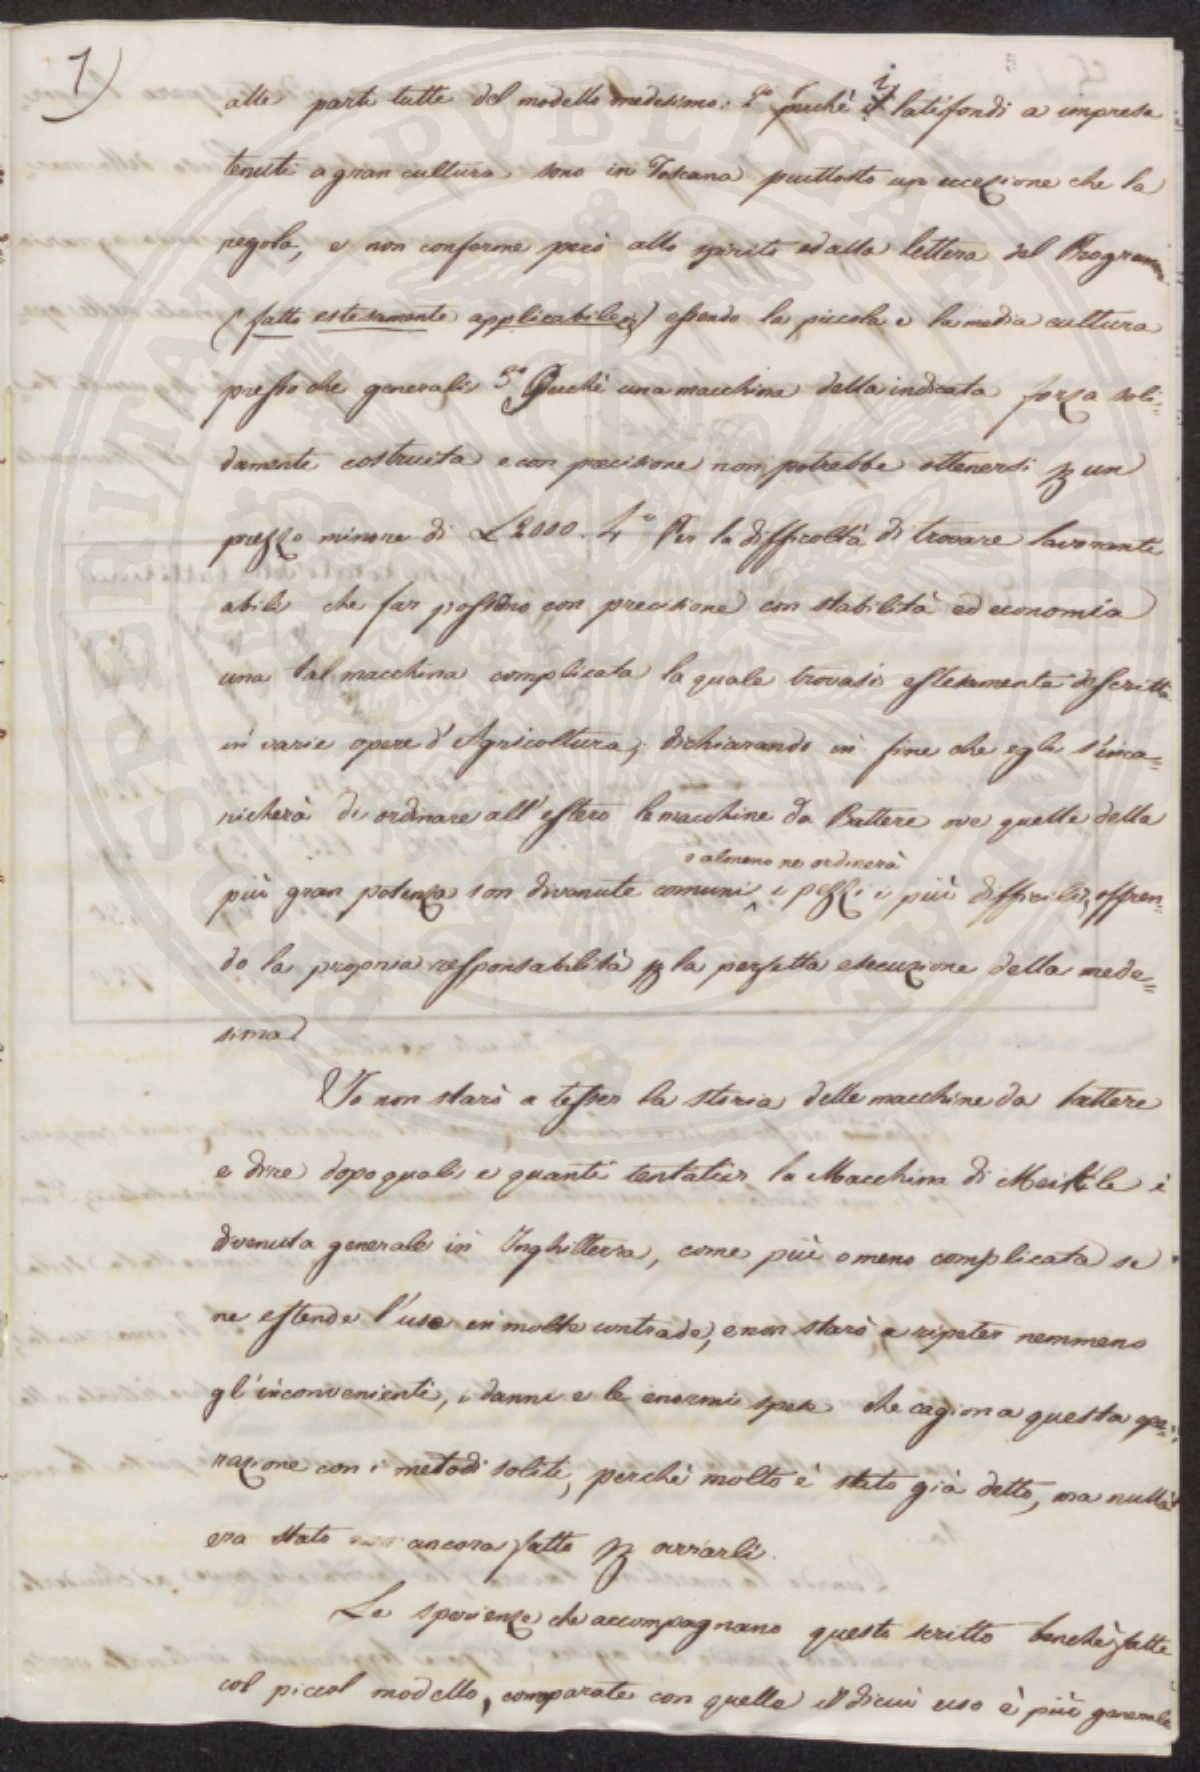 1)
alle parti tutte del modello medesimo: 2º perchè i latifondi a impresa
tenuti a gran cultura sono in Toscana piuttosto un eccezione che la
regola, e non conforme però allo spirito ed alla lettera del Programma
(fatto estesamente applicabile) essendo la piccola e la media cultura
presso che generali 3º Perchè una macchina della indicata forza soli=
damente costruita e con precisione non potrebbe ottenersi p un
prezzo minore di £2000. 4º Per la difficoltà di trovare lavoranti
abili che far possano con precisione con stabilità ed economia
una tal macchina complicata la quale trovasi estesamente descritta
in varie opere d'Agricoltura; dichiarando in fine che egli s'inca=
richerà di ordinare all'estero le macchine da Battere ove quelle della
o almeno ne ordinerà
più gran potenza son divenute comuni i pezzi i più difficili, offren=
do la propria responsabilità p la perfetta esecuzione della mede=
sima
Io non starò a tesser la storia delle macchine da battere
e dire dopo quali e quanti tentativi la Macchina di Meikle è
divenuta generale in Inghilterra, come più o meno complicata se
ne estende l'uso in molte contrade, e non starò a ripeter nemmeno
gl'inconvenienti, i danni e le enormi spese che cagiona questa ope=
razione con i metodi soliti, perchè molto è stato già detto, ma nulla
era stato ancora fatto p ovviarli.
Le sperienze che accompagnano questo scritto benchè fatte
col piccol modello, comparate con quello il di cui uso è più generale
PUBLICAE